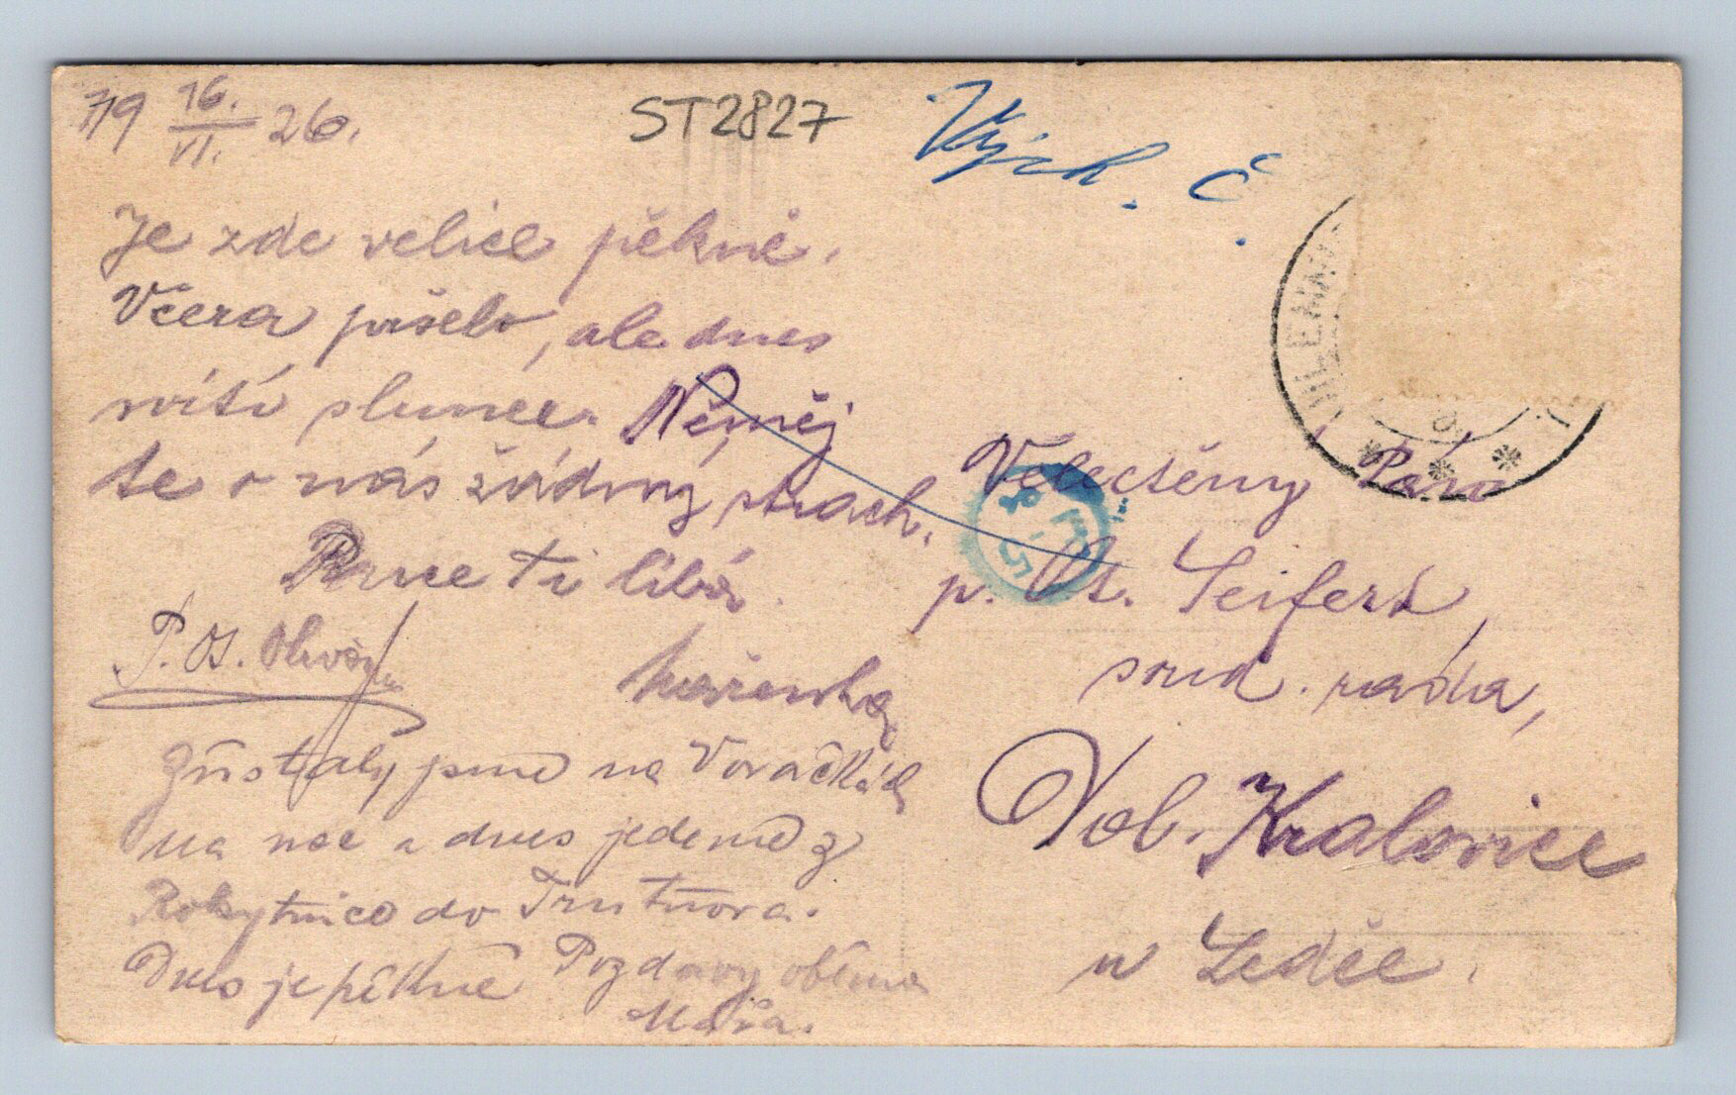 16.
VI. 26.
ST2827
Vých. Č.
Je zde velice pěkně.
Včera pršelo, ale dnes
svítí slunce. Neměj
se o nás žádný strach.
Ruce Ti líbá
Mařenka
P. Ot.
Zůstaly jsme na Voračkách
na noc a dnes jedeme z
Rokytnice do Trutnova.
Dnes je pěkně Pozdravy oběma
Máňa.
Velectěný Pán
p. Ot. Seifert,
soud. rada,
Dol. Kralovice
u Ledče.